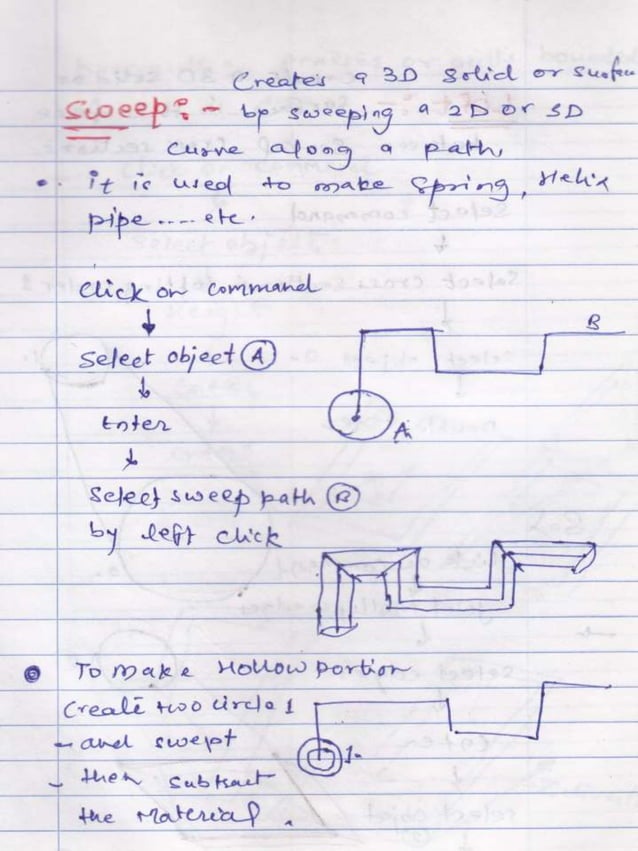 Creates a 3D Solid or surface
Sweep:- by sweeping a 2D or 3D
curve along a path,
it is used to make Spring, Helix
pipe.....etc.
Click on command
B
Select object A
Enter
A
Select sweep path B
by left click
To make Hollow portion
Create two circle 1
- and swept
1-
- then subtract
the material.